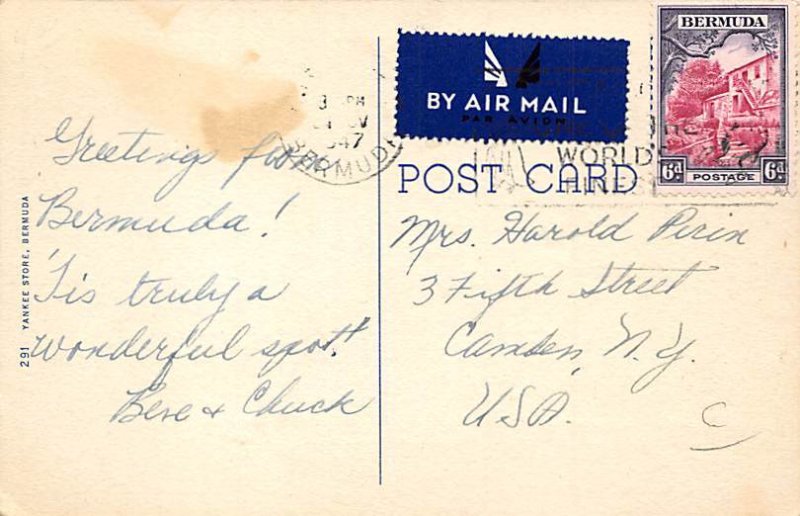 BERMUDA
BY AIR MAIL
PAR AVION
PM
1947
BERMUDA
WORLD'S
POST CARD
6d POSTAGE 6d
Greetings from
Bermuda!
'Tis truly a
wonderful spot!
Beve + Chuck
Mrs. Harold Perin
3 Fifth Street
Camden, N.Y.
USA.
C
291 YANKEE STORE, BERMUDA